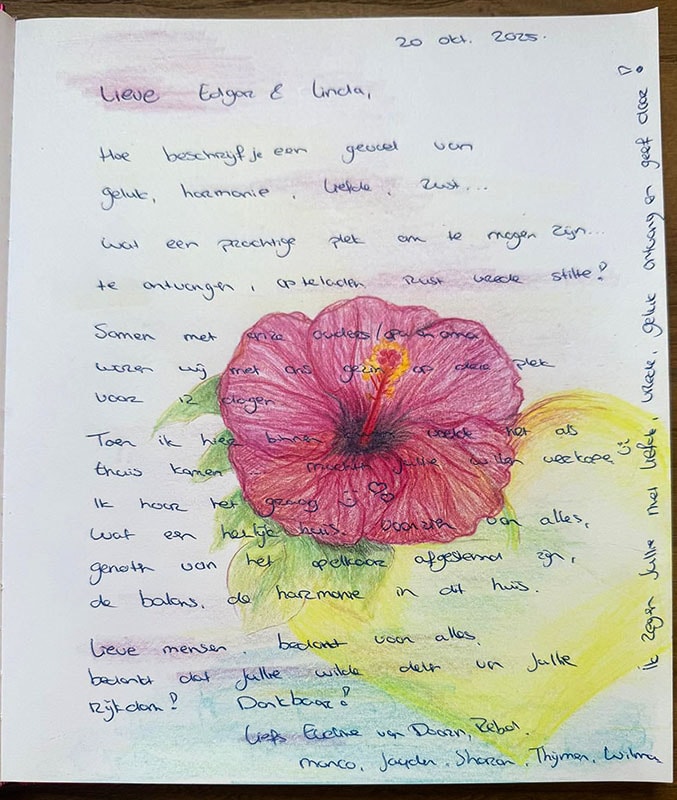 20 okt. 2025.
Lieve Edgar & Linda,
Hoe beschrijf je een gevoel van
geluk, harmonie, liefde, rust...
wat een prachtige plek om te mogen zijn...
te ontvangen, opteladen rust vrede stilte!
Samen met onze ouders/opa en oma,
waren wij met ons gezin op deze plek
voor 12 dagen
Toen ik hier binnen voelde het als
thuis komen mochten jullie willen verkopen
Ik hoor het graag
wat een heerlijk huis. voorzien van alles,
genoten van het opelkaar afgestemd zijn,
de balans, de harmonie in dit huis.
Lieve mensen, bedankt voor alles,
bedankt dat jullie wilde delen van jullie
Rijkdom! Dankbaar!
Liefs Eveline van Doorn,
Marco, Jayden, Sharon, Thijmen, Wilma
ik zegen jullie met liefde, vrede, geluk ontvang en geef door!